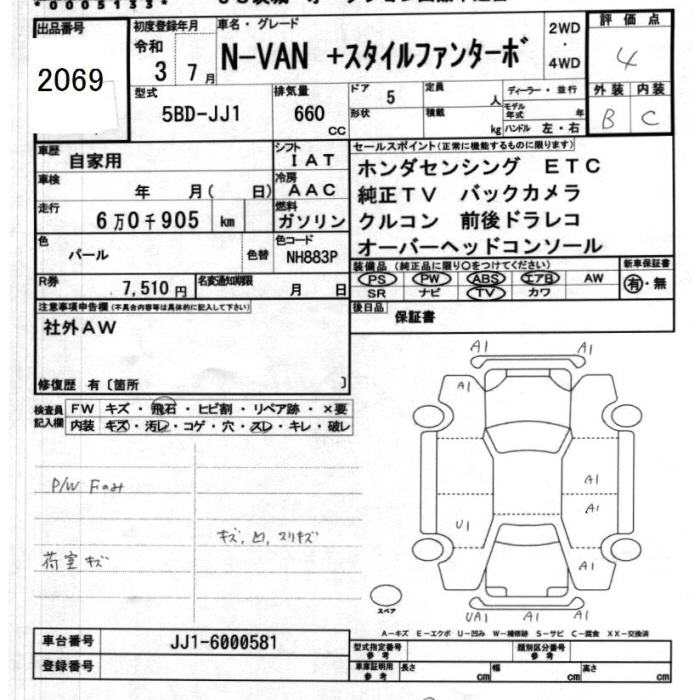 *0005133*
出品番号
2069
初度登録年月
令和
3 7月
車名・グレード
N-VAN +スタイルファンターボ
2WD
・
4WD
評価点
4
外装 内装
B C
型式
5BD-JJ1
排気量
660
CC
ドア
5
形状
定員
人
積載
kg
ディーラー・並行
モデル年式 年
ハンドル 左・右
車歴
自家用
シフト
IAT
車検
年 月( 日)
冷房
AAC
走行
6万0千905 km
燃料
ガソリン
色
パール
色替
色コード
NH883P
R券
7,510円
名変通知期限
月 日
セールスポイント(正常に機能するものに限ります)
ホンダセンシング ETC
純正TV バックカメラ
クルコン 前後ドラレコ
オーバーヘッドコンソール
装備品(純正品に限り○をつけてください)
PS PW ABS エアB AW
SR ナビ TV カワ
新車保証書
有・無
後日品
保証書
注意事項申告欄(不具合内容等は具体的に記入して下さい)
社外AW
修復歴 有〔箇所 〕
検査員
記入欄
FW キズ・飛石・ヒビ割・リペア跡・×要
内装 キズ・汚レ・コゲ・穴・スレ・キレ・破レ
P/W Fのみ
キズ,凹,スリキズ
荷室 キズ
A1 A1
A1
A1
A1
U1
A1
UA1 A1 A1
スペア
A-キズ E-エクボ U-凹み W-補修跡 S-サビ C-腐食 XX-交換済
車台番号
JJ1-6000581
登録番号
型式指定番号
参考
類別区分番号
参考
車庫証明用
参考
長さ cm 幅 cm 高さ cm